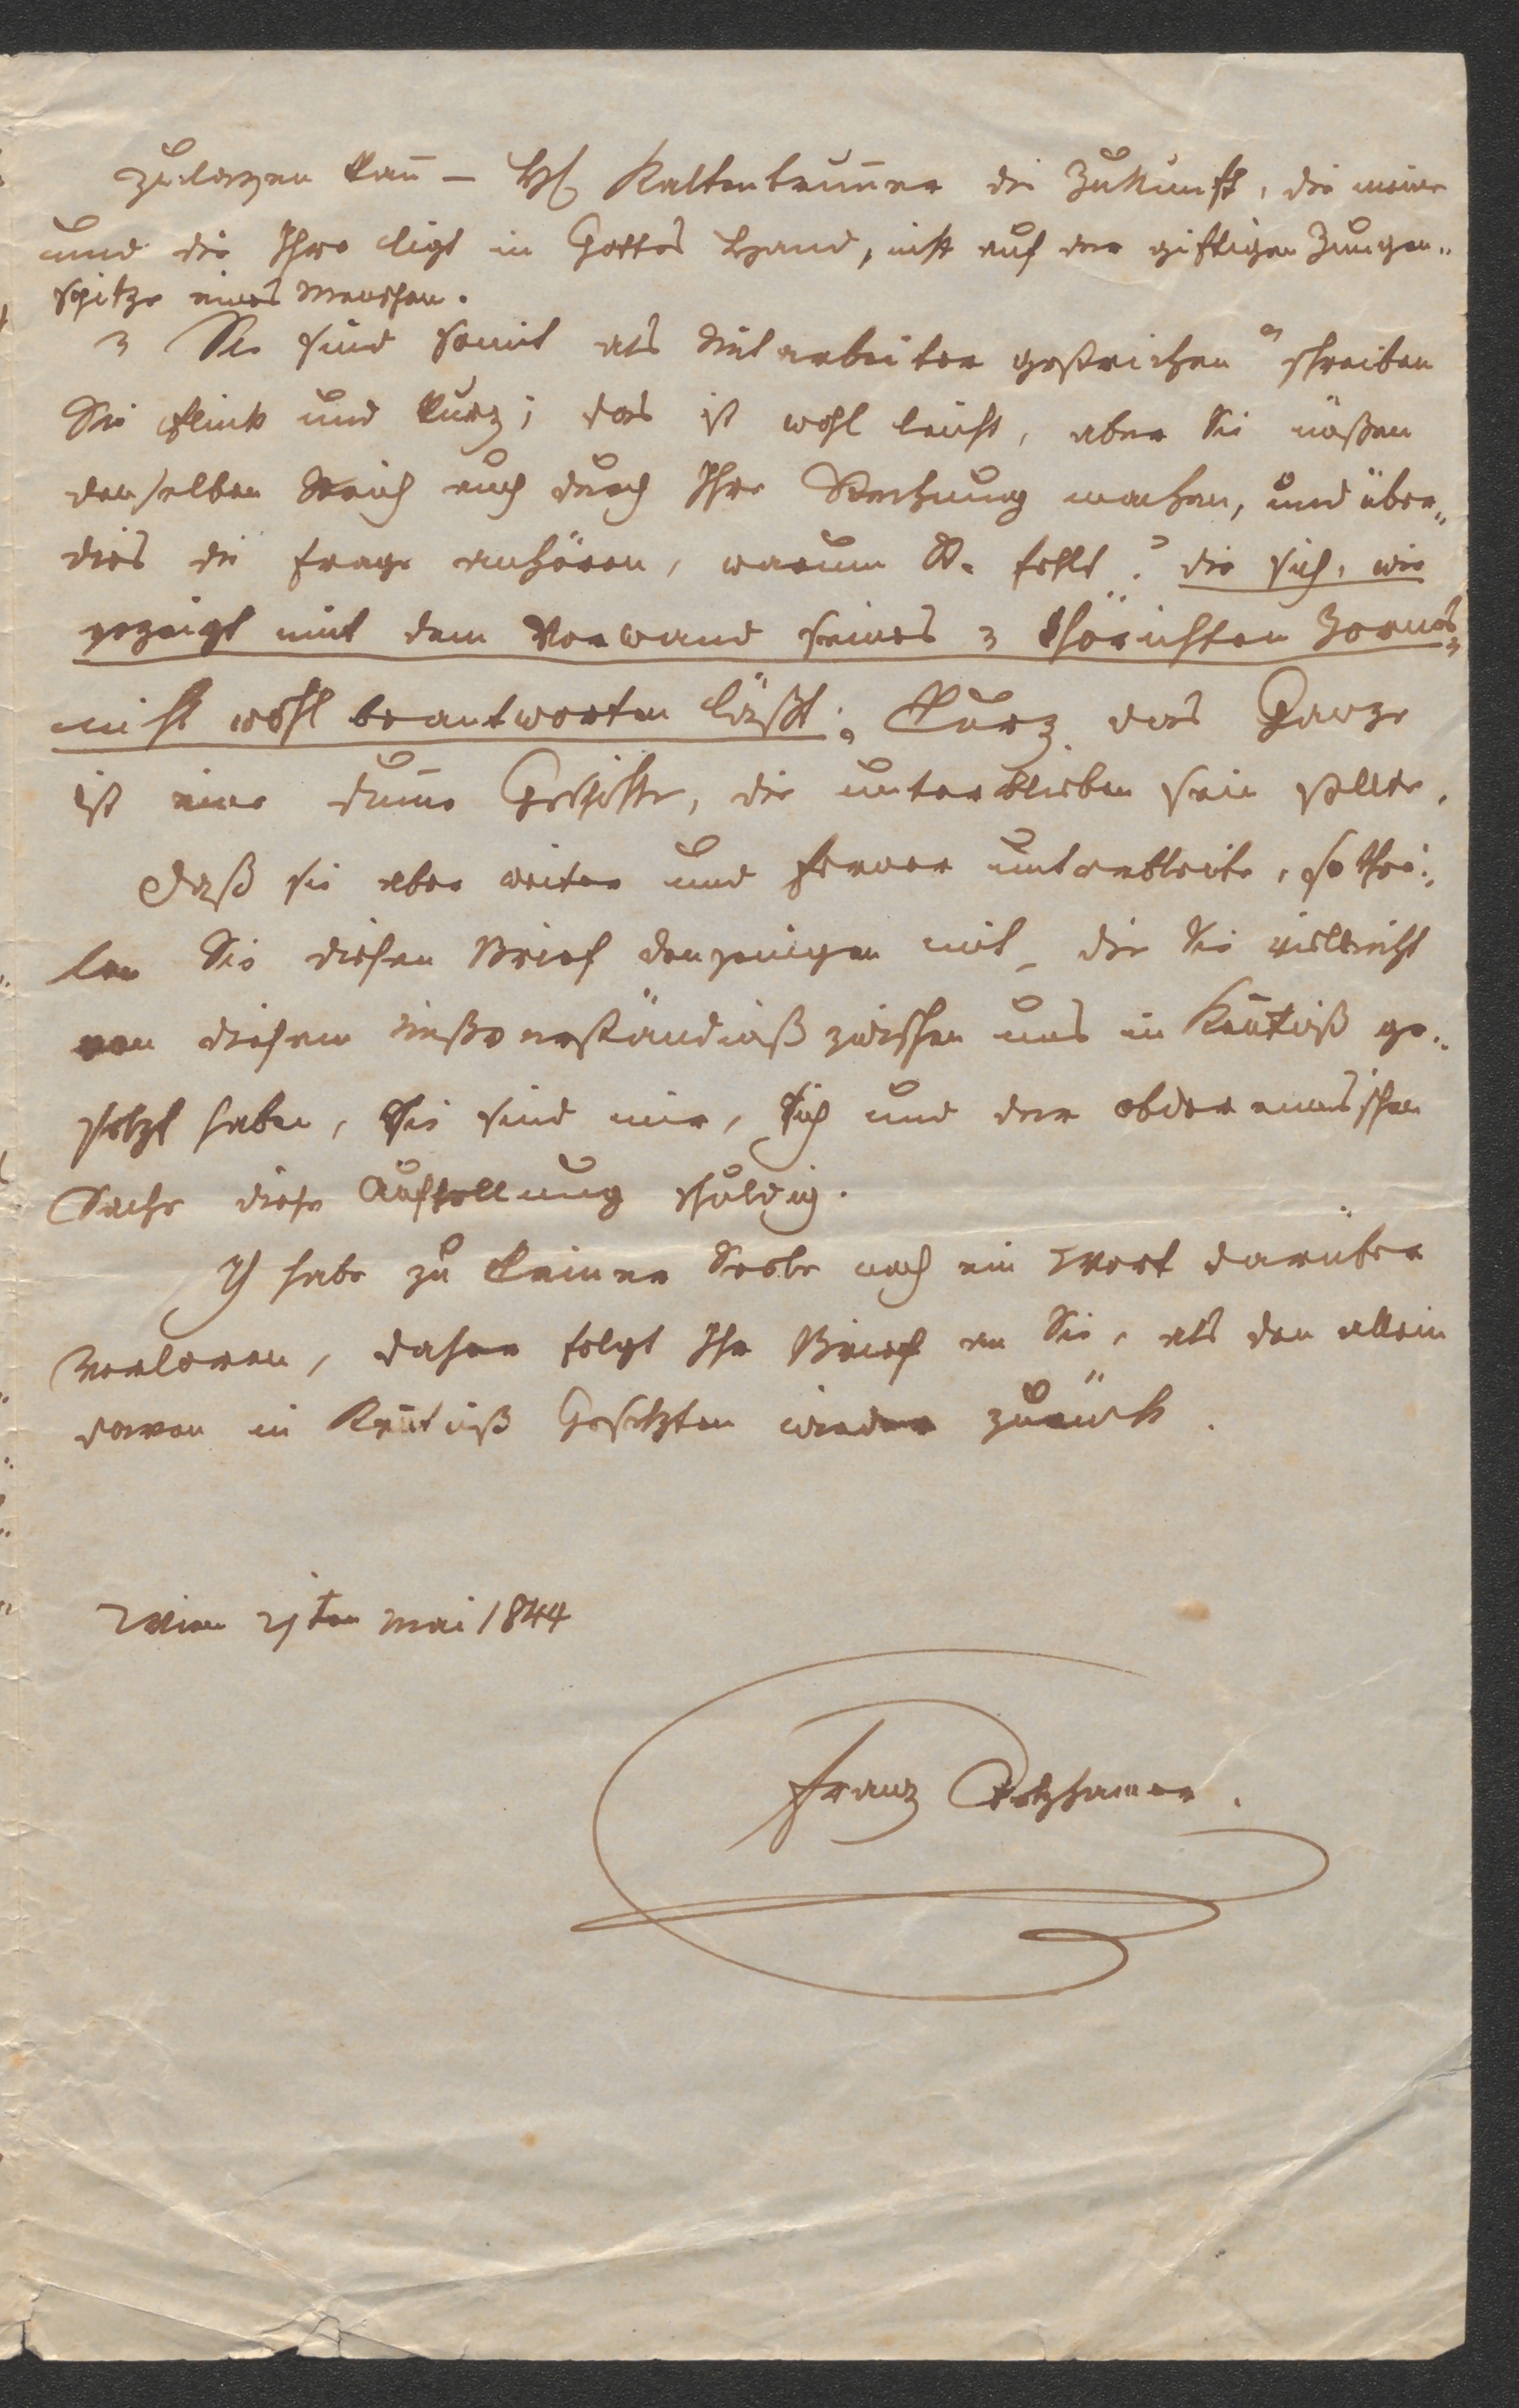 zulassen kan̄ — H Kaltenbrun̄er die Zukunft, die meine
und die Ihre ligt in Gottes Hand, nicht auf der giftigen Zungen-
spitze eines Menschen.
Sie sind somit als Mitarbeiter gestrichen" schreiben
Sie flink und kurz; das ist wohl leicht, aber Sie müßen
denselben Strich auch durch Ihre Rechnung machen, und über-
dies die Frage anhören, warum K. fehlt? die sich, wie
gezeigt mit dem Vorwand seines thörichten Zornes
nicht wohl beantworten läßt; Kurz das Ganze
ist eine dum̄e Geschichte, die unterblieben sein sollte.
Daß sie aber weiter und ferner unterbleibe, so thei-
len Sie diesen Brief denjenigen mit, die Sie vielleicht
von diesem Mißverständniß zwischen uns in Ken̄tniß ge-
setzt haben, Sie sind mir, sich und der obderennsischen
Sache diese Aufhellung schuldig.
Ich habe zu keiner Seele noch ein Wort darüber
verloren, daher folgt Ihr Brief an Sie, als den allein
davon in Ken̄tniß Gesetzten wieder zurück.
Wien 21ten Mai 1844
Franz Stelzhamer.